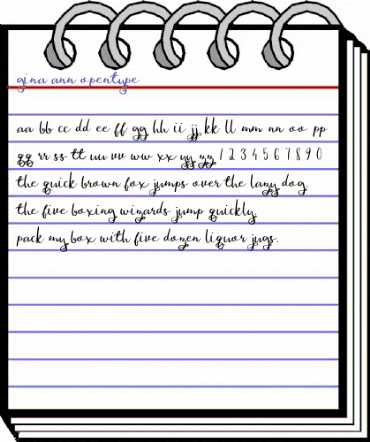 gina ann opentype
aa bb cc dd ee ff gg hh ii jj kk ll mm nn oo pp
qq rr ss tt uu vv ww xx yy zz 1 2 3 4 5 6 7 8 9 0
the quick brown fox jumps over the lazy dog
the five boxing wizards jump quickly
pack my box with five dozen liquor jugs.